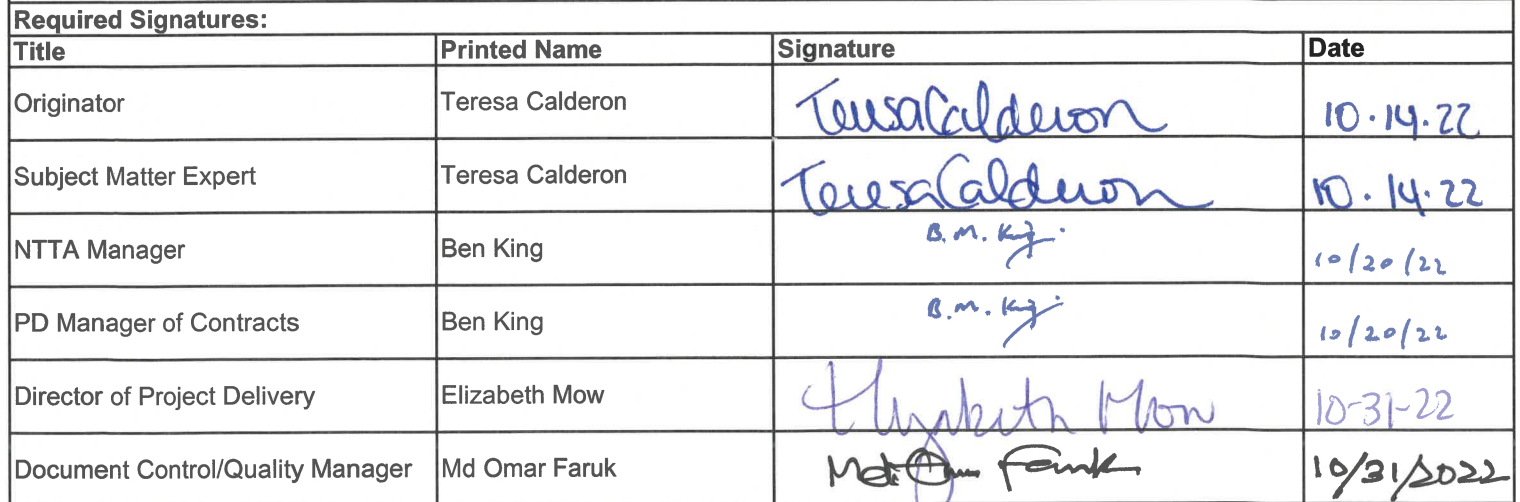 Required Signatures:
Title Printed Name Signature Date
Originator Teresa Calderon Teresa Calderon 10.14.22
Subject Matter Expert Teresa Calderon Teresa Calderon 10.14.22
NTTA Manager Ben King B. M. King 10/20/22
PD Manager of Contracts Ben King B. M. King 10/20/22
Director of Project Delivery Elizabeth Mow Elizabeth Mow 10-31-22
Document Control/Quality Manager Md Omar Faruk Md Omar Faruk 10/31/2022